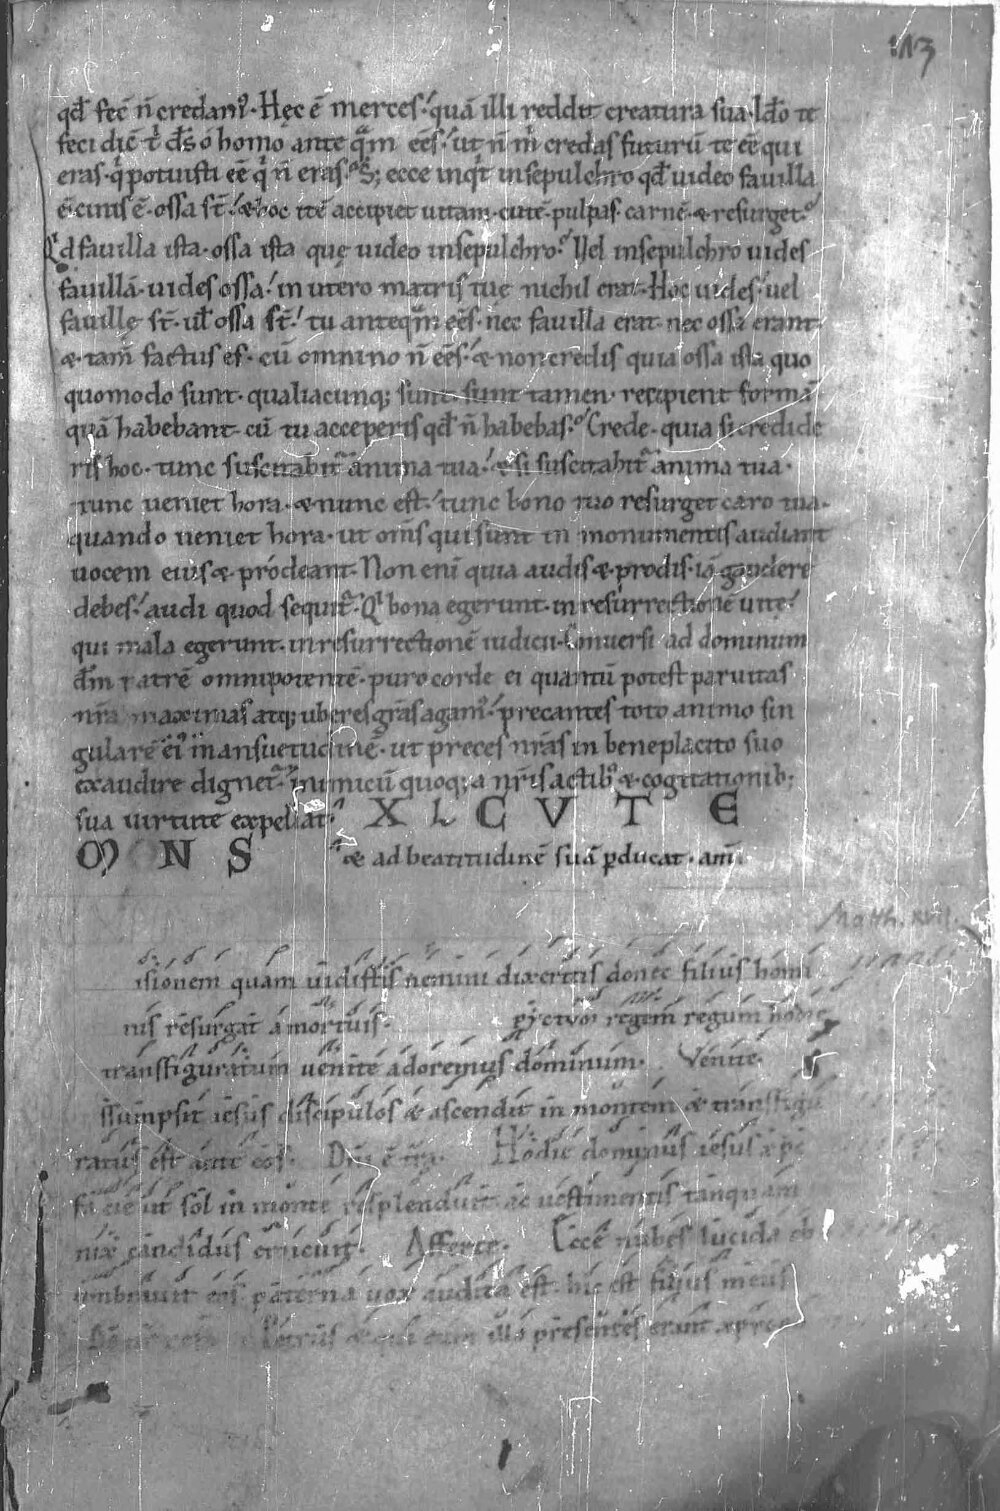 :113
qđ fec̄ n̄ credam᷒. Hęc ē merces. quā illi reddit creatura sua. Ido te
feci dic̄ t̄ d̄s o homo ante qͣm eēs. ut n̄ m̄ credas futurū te eē qui
eras. q potuisti eē q n̄ eras. S; ecce inqt insepulchro qđ uideo fauilla
ē. cinis ē. ossa st̄. & hoc itē accipiet uitam. cutē. pulpas. carnē. & resurget.
Qd fauilla ista. ossa ista quę uideo insepulchro. Vel insepulchro uides
fauillā. uides ossa. in utero matris tuę nichil erat. Hoc uides. uel
fauillę st̄. ul̄ ossa st̄. tu anteqͣm eēs. nec fauilla erat. nec ossa erant
& tam̄ factus es. cū omnino n̄ eēs. & noncredis quia ossa ista quo
quomodo sunt. qualiacunq; sunt sunt tamen. recipient formā
quā habebant. cū tu acceperis qđ n̄ habebas. Crede. quia si credide
ris hoc. tunc suscitabit̄ anima tua. & si suscitabit̄ anima tua.
tunc ueniet hora. & nunc est. tunc bono tuo resurget caro tua.
quando ueniet hora. ut om̄s qui sunt in monumentis audiant
uocem eius & prodeant. Non eni quia audis & prodis. iā gaudere
debes. audi quod sequit̄. Q bona egerunt. in resurrectionē uitę.
qui mala egerunt. inresurrectionē iudicii. Conuersi ad dominum
d̄m patrē omnipotentē. puro corde ei quantū potest paruitas
nr̄a maximas atq; uberes gr̄as agam᷒. precantes toto animo sin
gularē ei᷒ mansuetudinē. ut preces nr̄as in beneplacito suo
exaudire dignet̄. inimicū quoq; a nr̄is actib᷒ & cogitationib;
sua uirtute expellat. X L C V T E
M N S & ad beatitudinē suā ꝑducat. am̄
Matth. XVII.
isionem quam uidistis nemini dixeritis donec filius homi
nis resurgat a mortuis. regem regum hodie
transfiguratum uenite adoremus dominum. Venite.
ssumpsit iesus discipulos & ascendit in montem & transfigu
ratus est ante eos. Dn̄i ē tr̄a. Hodie dominus iesus
facie ut sol in monte resplenduit ac uestimentis tanquam
nix candidus emicuit. Afferte. Ecce nubes lucida ob
umbrauit eos paterna uox audita est. hic est filius meus
Petrus & qui cum illo presentes erant